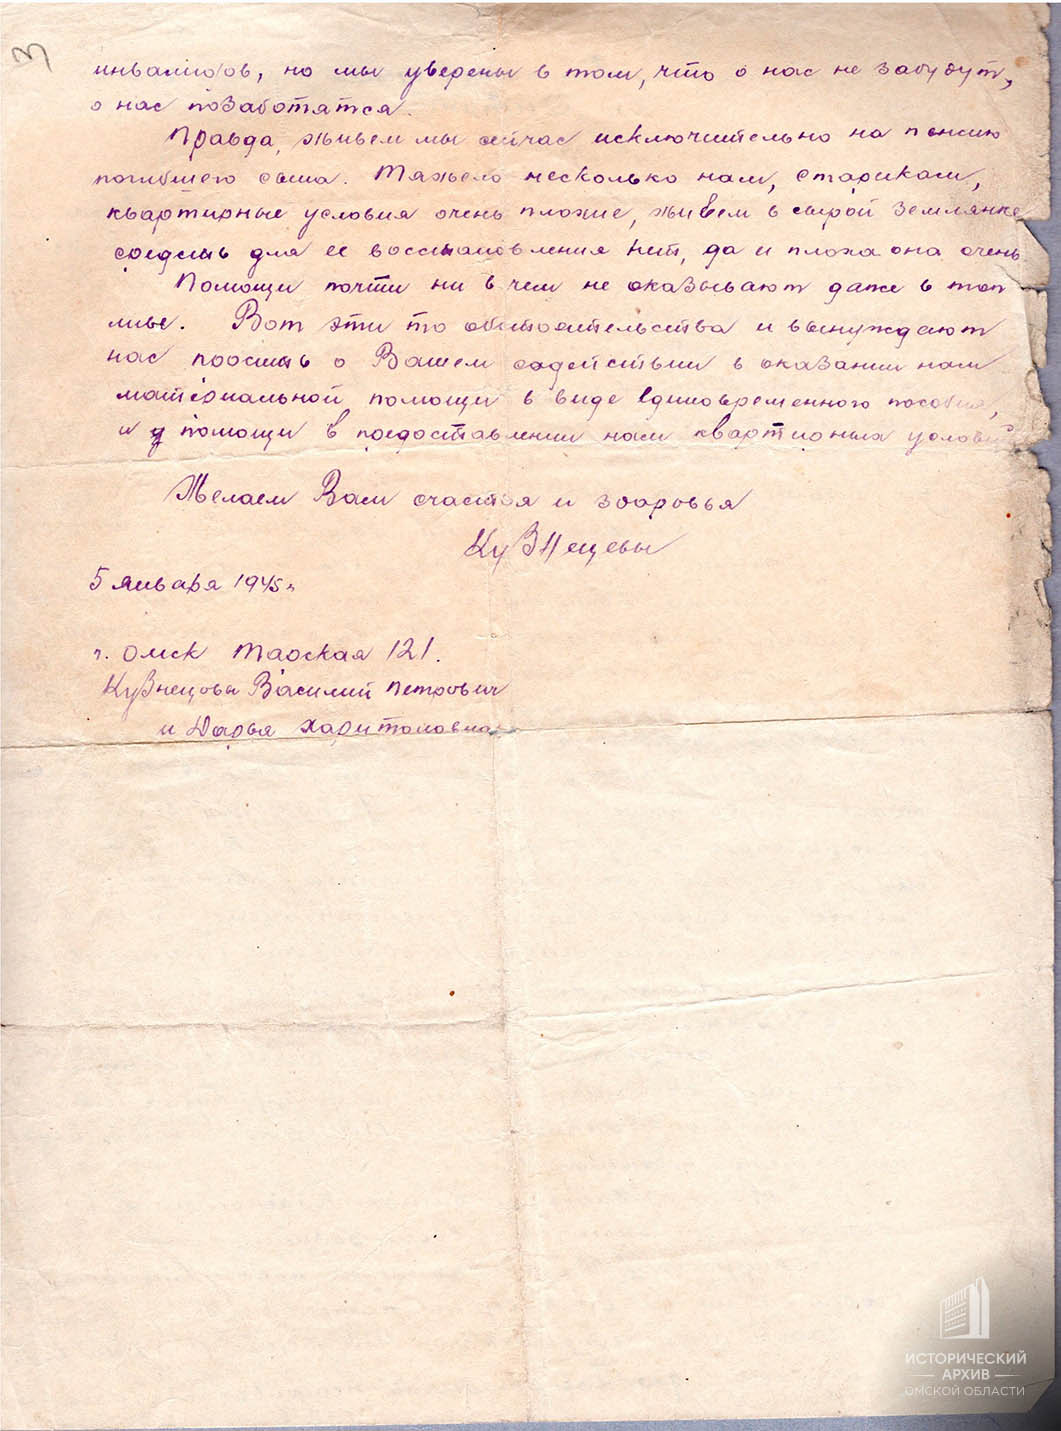 3
инвалидов, но мы уверены в том, что о нас не забудут,
о нас позаботятся.
Правда, живем мы сейчас исключительно на пенсию
погибшего сына. Тяжело несколько нам, старикам,
квартирные условия очень плохие, живем в сырой землянке
средств для ее восстановления нет, да и плоха она очень
Помощи почти ни в чем не оказывают даже в топ
ливе. Вот эти то обстоятельства и вынуждают
нас просить о Вашем содействии в оказании нам
материальной помощи в виде единовременного пособия,
и помощи в предоставлении нам квартирных условий
Желаем Вам счастья и здоровья
Кузнецовы
5 января 1945 г.
г. Омск Тарская 121.
Кузнецовы Василий Петрович
и Дарья Харитоновна
ИСТОРИЧЕСКИЙ
АРХИВ
ОМСКОЙ ОБЛАСТИ